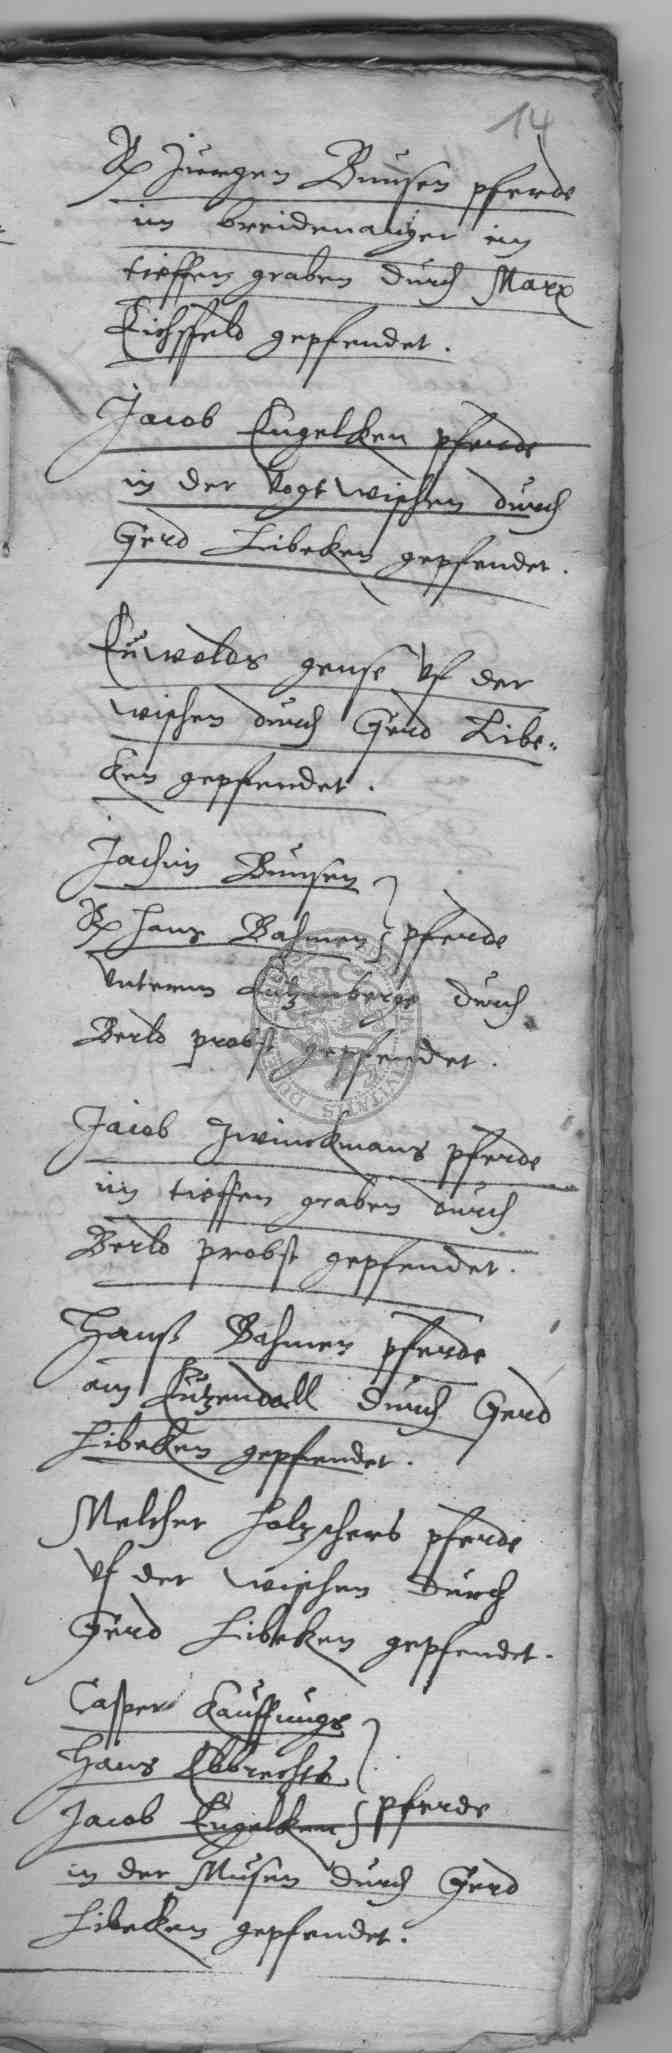 14
Rp Jurgen Bunsen pferde
im breidenanger im
tieffen graben durch Marx
Eichsfeld gepfendet.
Jacob Engelken pferde
in der Vogtwischen durch
Gerd Libeken gepfendet.
Euwolds gense vf der
wischen durch Gerd Libe-
ken gepfendet.
Jachim Bunsen
Rp Hans Bahmen pferde
vnterm durch
Berld probst gepfendet.
Jacob Zwinckmans pferde
im tieffen graben durch
Berld probst gepfendet.
Hanß Bahmen pferde
am Kutzendall durch Gerd
Libeken gepfendet.
Melcher Holzschers pferde
vf der wischen durch
Gerd Libeken gepfendet.
Casper Kauffungs
Hans Ebbrechts
Jacob Engelken pferde
in der Musen durch Gerd
Libeken gepfendet.